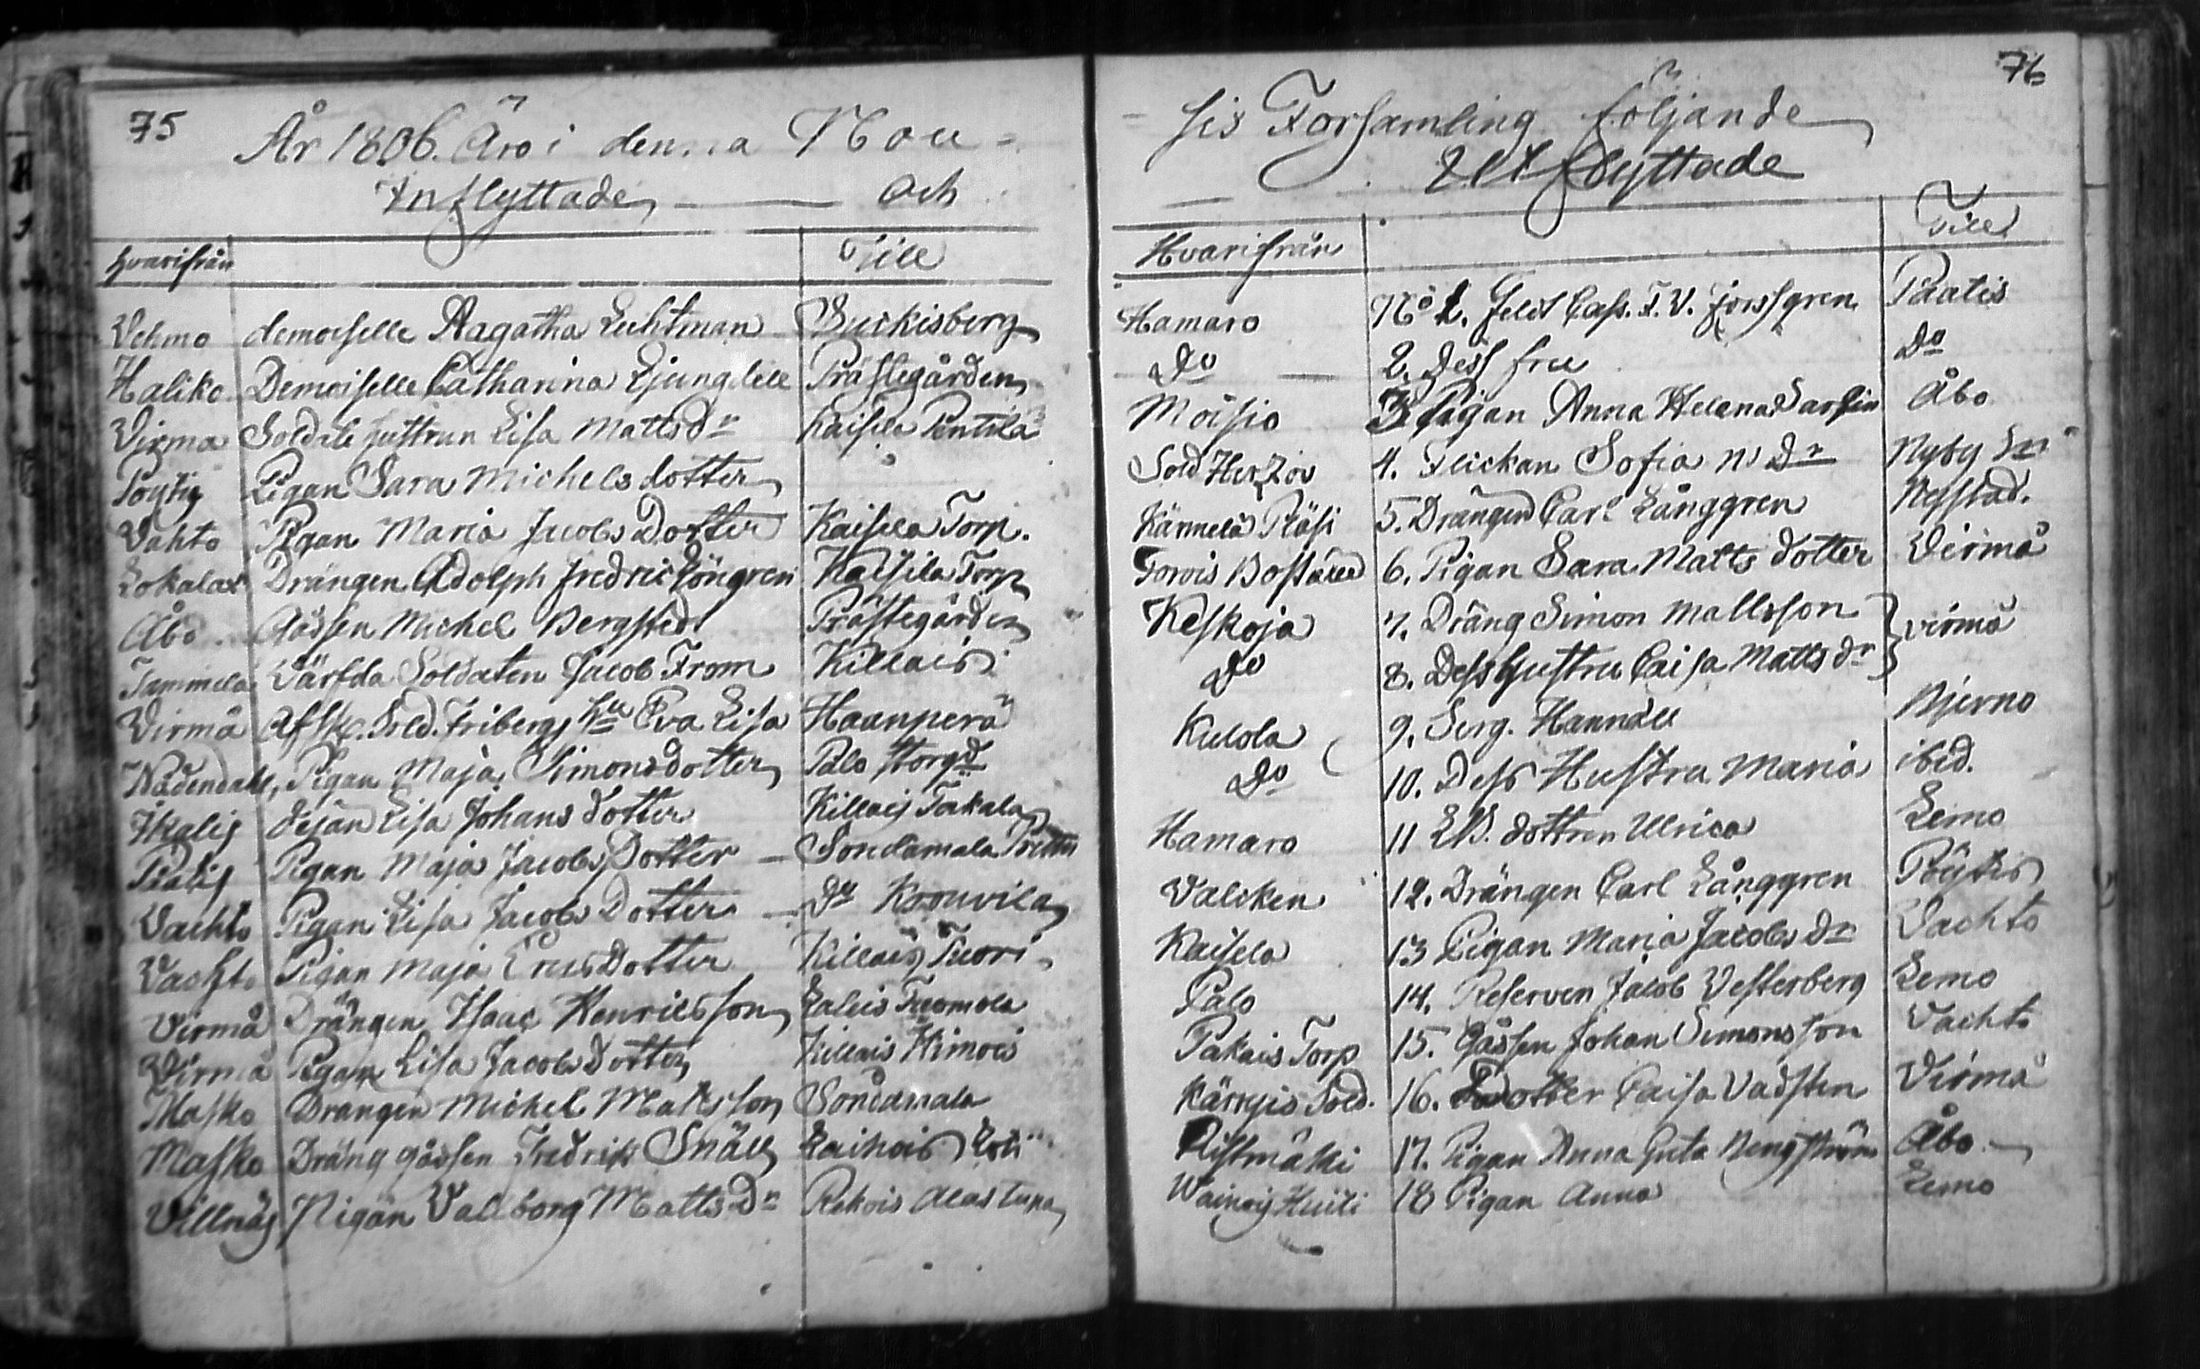 75
År 1806. Äro i denna Nou=
Inflyttade, — och
hvarifrån Till
Vehmo demoiselle Aagatha Luhtman Suckisberg
Haliko Demoiselle Catharina Ljunglell Prästegården
Virma Soldats hustrun Lisa Mattsdr Kaisela Penttilä
Pöytis Pigan Sara Michelsdotter
Vahto Pigan Maria Jacobs Dotter Kaisela Torp.
Lokalax Drängen Adolph Fredric Löngren Kaisila Torp
Åbo Gåssen Michel Bergsted Prästegården
Tammela Värfda Soldaten Jacob From Killais
Virmå Afsk. Sold. Fribergs hu Eva Lisa Haanperä
Nådendahl, Pigan Maja Simonsdotter Palo Storgd
Ikalis Pejan Lisa Johans dotter Killais Takala
Paatis Pigan Maja Jacobs Dotter — Sondamala
Vachto Pigan Lisa Jacobs Dotter — Do Kouvila
Vachto Pigan Maja Erics Dotter Killais Tuori
Virmå Drängen Isaac Henricsson Laleis Tuomola
Virmå Pigan Lisa Jacobs dotter Killais Himois
Masko Drängen Michel Matsson Sondamala
Masko Dräng gåssen Fredrik Snäll Kaihois
Villnäs Pigan Valborg Matts Dr Rekois Alastupa
76
sis Forsamling följande
Utflyttade
Hvarifrån Till
Hamaro No 1. Feldt Cass. F. V. Forssgren Paatis
Do — 2. Dess fru Do
Moisio 3 Pigan Anna Helena Åbo
Sold Herkov 4. Flickan Sofia N Dr Nyby
Kännelä Pläsi 5. Drängen Carl Långgren Nystad.
Torvis Boställe 6. Pigan Sara Matts dotter Virmå
Keskoja 7. Dräng Simon Mattsson
Do 8. Dess hustru Caisa Matts dr } Virmå
Kulola 9. Serg. Hannell Bjerno
Do 10. Dess Hustru Maria ibid.
Hamaro 11 dottren Ulrica Lemo
Valcken 12. Drängen Carl Långgren Pöytis
Kaisela 13 Pigan Maria Jacobs dr Vachto
Palo 14. Reserven Jacob Vesterberg Lemo
Pakais Torp 15. Gåssen Johan Simonsson Vachto
Kärryis Sold. 16. Dotter Caisa Vadsten Virmå
Ristmäki 17. Pigan Anna Greta Bengström Åbo
Wainois Huiti 18 Pigan Anna Lemo